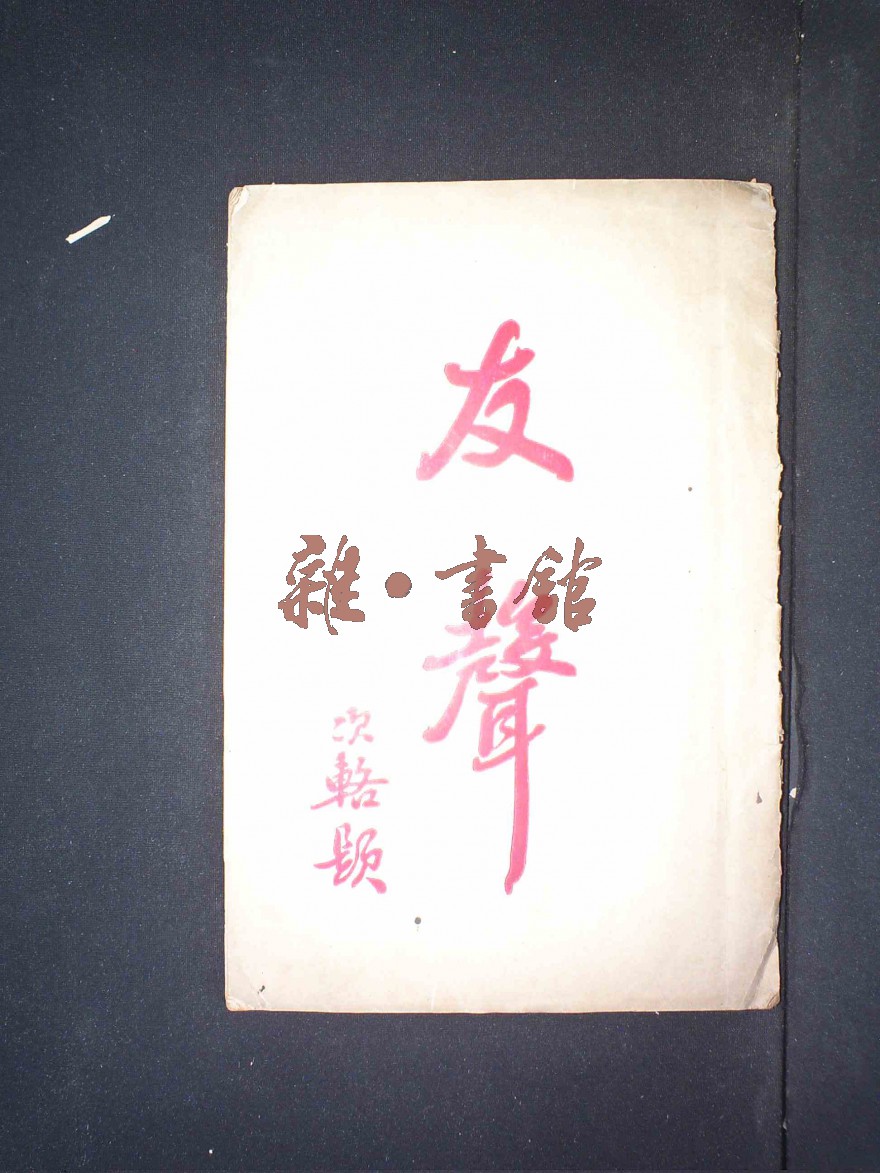 友聲
雜·書館
次輅題